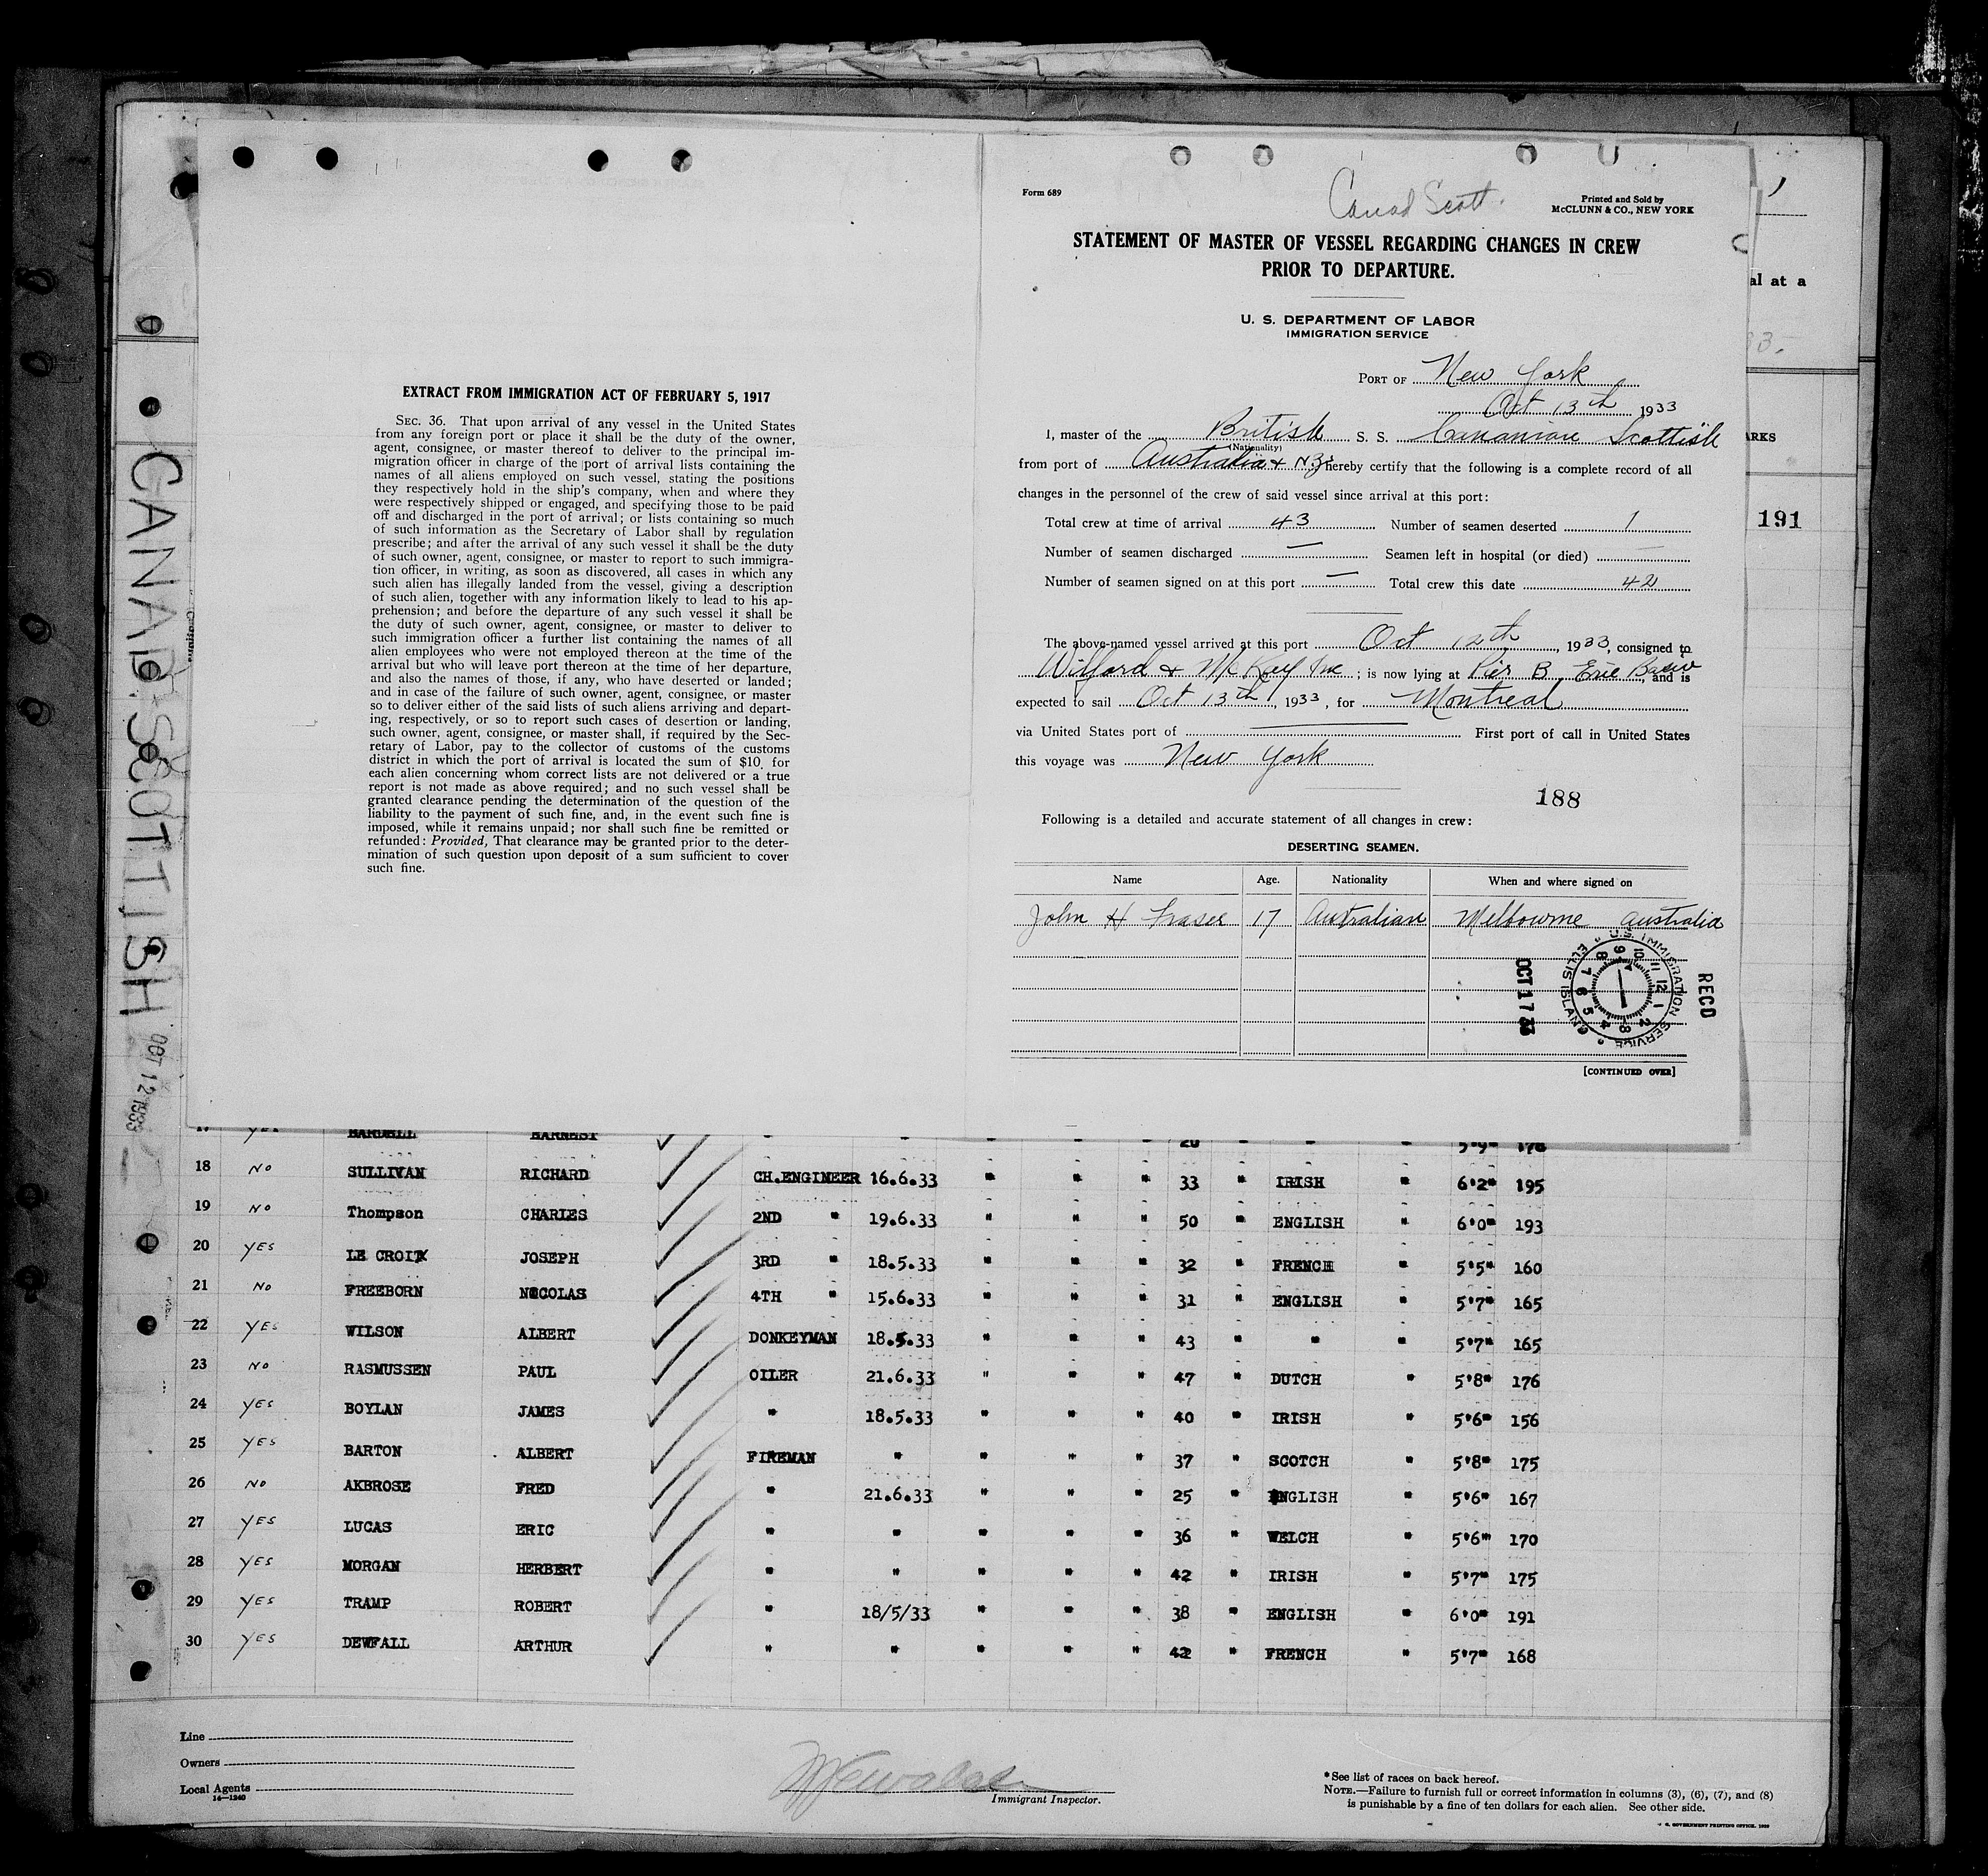 CANAD. SCOTTISH
OCT 12 1933
EXTRACT FROM IMMIGRATION ACT OF FEBRUARY 5, 1917
SEC. 36. That upon arrival of any vessel in the United States
from any foreign port or place it shall be the duty of the owner,
agent, consignee, or master thereof to deliver to the principal im-
migration officer in charge of the port of arrival lists containing the
names of all aliens employed on such vessel, stating the positions
they respectively hold in the ship's company, when and where they
were respectively shipped or engaged, and specifying those to be paid
off and discharged in the port of arrival; or lists containing so much
of such information as the Secretary of Labor shall by regulation
prescribe; and after the arrival of any such vessel it shall be the duty
of such owner, agent, consignee, or master to report to such immigra-
tion officer, in writing, as soon as discovered, all cases in which any
such alien has illegally landed from the vessel, giving a description
of such alien, together with any information likely to lead to his ap-
prehension; and before the departure of any such vessel it shall be
the duty of such owner, agent, consignee, or master to deliver to
such immigration officer a further list containing the names of all
alien employees who were not employed thereon at the time of the
arrival but who will leave port thereon at the time of her departure,
and also the names of those, if any, who have deserted or landed;
and in case of the failure of such owner, agent, consignee, or master
so to deliver either of the said lists of such aliens arriving and depart-
ing, respectively, or so to report such cases of desertion or landing,
such owner, agent, consignee, or master shall, if required by the Sec-
retary of Labor, pay to the collector of customs of the customs
district in which the port of arrival is located the sum of $10 for
each alien concerning whom correct lists are not delivered or a true
report is not made as above required; and no such vessel shall be
granted clearance pending the determination of the question of the
liability to the payment of such fine, and, in the event such fine is
imposed, while it remains unpaid; nor shall such fine be remitted or
refunded: Provided, That clearance may be granted prior to the deter-
mination of such question upon deposit of a sum sufficient to cover
such fine.
Form 689
Canad Scott.
Printed and Sold by
McCLUNN & CO., NEW YORK
STATEMENT OF MASTER OF VESSEL REGARDING CHANGES IN CREW
PRIOR TO DEPARTURE.
U. S. DEPARTMENT OF LABOR
IMMIGRATION SERVICE
PORT OF New York
Oct 13th 1933
I, master of the British S. S. Cananian Scottish
(Nationality)
from port of Australia & NZ, hereby certify that the following is a complete record of all
changes in the personnel of the crew of said vessel since arrival at this port:
Total crew at time of arrival 43 Number of seamen deserted 1
Number of seamen discharged — Seamen left in hospital (or died) —
Number of seamen signed on at this port — Total crew this date 42
The above-named vessel arrived at this port Oct 12th, 1933, consigned to
Wilford & McKay Inc; is now lying at Pier B Erie Basin, and is
expected to sail Oct 13th, 1933, for Montreal
via United States port of First port of call in United States
this voyage was New York
188
Following is a detailed and accurate statement of all changes in crew:
DESERTING SEAMEN.
Name Age. Nationality When and where signed on
John H Fraser 17 Australian Melbourne Australia
RECD
U.S. IMMIGRATION SERVICE
ELLIS ISLAND
OCT 17 33
[CONTINUED OVER]
al at a
33.
ARKS
191
17 YES BARDELL EARNEST " " " " " 20 " " " 5'9" 178
18 NO SULLIVAN RICHARD CH.ENGINEER 16.6.33 " " " 33 " IRISH " 6'2" 195
19 NO Thompson CHARLES 2ND " 19.6.33 " " " 50 " ENGLISH " 6'0" 193
20 YES LE CROIX JOSEPH 3RD " 18.5.33 " " " 32 " FRENCH " 5'5" 160
21 NO FREEBORN NICOLAS 4TH " 15.6.33 " " " 31 " ENGLISH " 5'7" 165
22 YES WILSON ALBERT DONKEYMAN 18.5.33 " " " 43 " " " 5'7" 165
23 NO RASMUSSEN PAUL OILER 21.6.33 " " " 47 " DUTCH " 5'8" 176
24 YES BOYLAN JAMES " 18.5.33 " " " 40 " IRISH " 5'6" 156
25 YES BARTON ALBERT FIREMAN " " " " 37 " SCOTCH " 5'8" 175
26 NO AKBROSE FRED " 21.6.33 " " " 25 " ENGLISH " 5'6" 167
27 YES LUCAS ERIC " " " " " 36 " WELCH " 5'6" 170
28 YES MORGAN HERBERT " " " " " 42 " IRISH " 5'7" 175
29 YES TRAMP ROBERT " 18/5/33 " " " 38 " ENGLISH " 6'0" 191
30 YES DEWFALL ARTHUR " " " " " 42 " FRENCH " 5'7" 168
Line
Owners
Local Agents
14—1240
Immigrant Inspector.
*See list of races on back hereof.
NOTE.—Failure to furnish full or correct information in columns (3), (6), (7), and (8)
is punishable by a fine of ten dollars for each alien. See other side.
U. S. GOVERNMENT PRINTING OFFICE